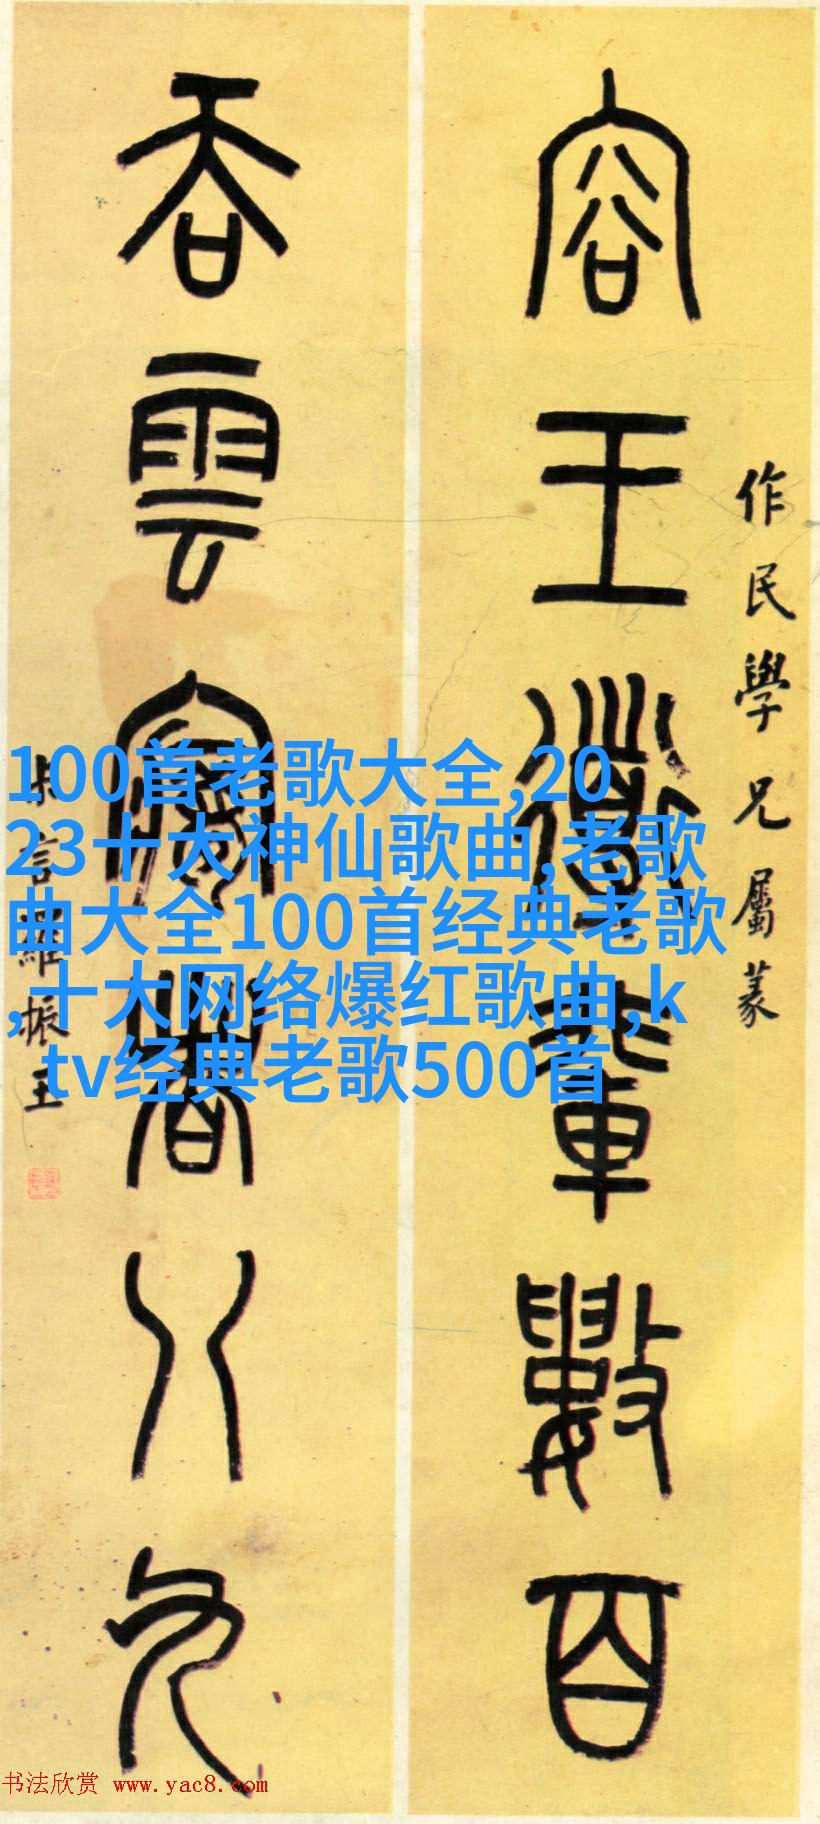 作民學兄屬篆
容王導輩數百
吞雲夢者八九
叔言羅振玉
100首老歌大全,20
23十大神仙歌曲,老歌
曲大全100首经典老歌
,十大网络爆红歌曲,k
tv经典老歌500首
书法欣赏 www.yac8.com